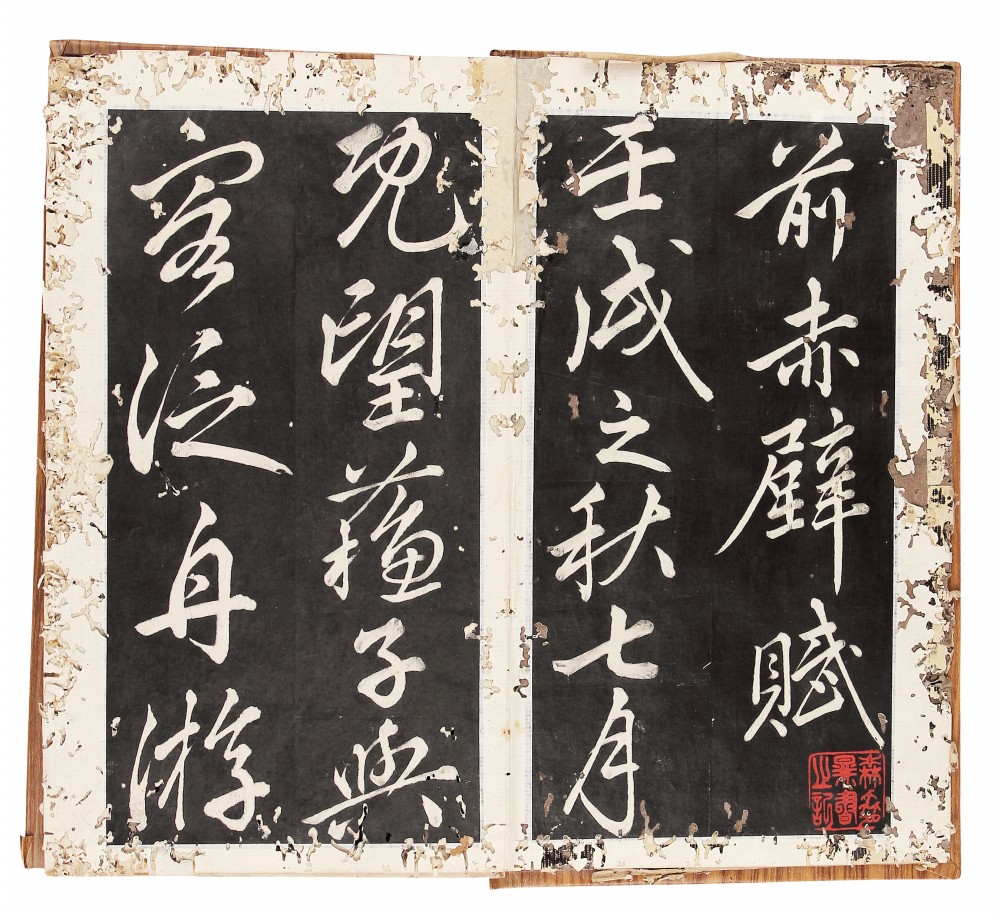 前赤壁賦
壬戌之秋七月
既望蘓子與
客泛舟游